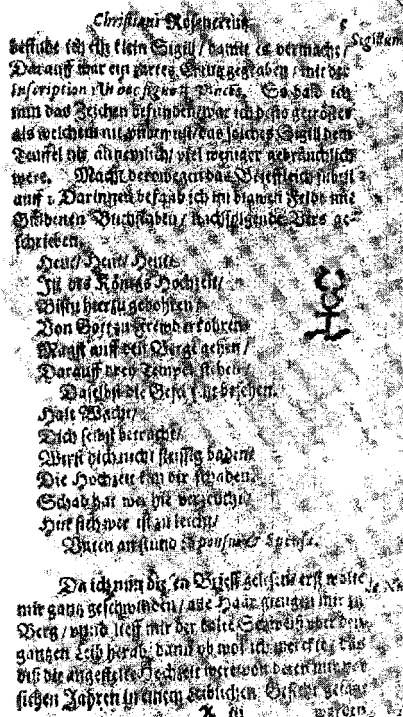 Christiani Rosencreutz 5
befinde ich ein klein Sigill / damit es vermacht / Sigillum
Darauff war ein zartes Creutz gegraben / mit der
inscription in hoc signo
So bald ich
nun das Zeichen befunden / war ich desto getröster
als welchem nit das solches Sigill dem
Teuffel nit annemlich / viel weniger gebräuchlich
were. Macht derowegen das Briefflein subtil
auff : Darinnen befand ich im blawen Feldt mit
Guldenen Buchstaben / nachfolgende Vers ge-
schrieben.
Heut / Heut / Heut /
Ist des Königs Hochzeit /
Bistu hierzu gebohren /
Von Gott zu Frewd erkohren
Magst auff den Berge gehen /
Darauff drey Tempel stehen /
Daselbst die Geschicht besehen.
Halt Wacht /
Dich selbst betracht /
Wirst dich nicht fleissig baden /
Die Hochzeit kan dir schaden.
Schad hat wer hie verzeucht /
Hüet sich wer ist zu leicht /
Unten an stund Sponsus & Sponsa.
Da ich nun diesen Brieff gelesen / erst wolte
mir gantz geschwinden / alle Haar giengen mir zu
Berg / unnd lieff mir der kalte Schweiß uber den
gantzen Leib herab / dann ob wol ich merckte / das
diß die angestelte Hochzeit were / von deren mir vor
siben Jahren in einem leiblichen Gesicht gesagt
A iij worden